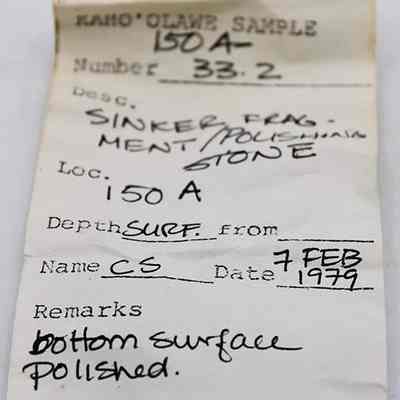 KAHO'OLAWE SAMPLE
150A-
Number 33.2
Desc.
SINKER FRAG-
MENT/POLISHING
STONE
Loc.
150 A
Depth SURF. from
Name CS Date 7 FEB
1979
Remarks
bottom surface
polished.